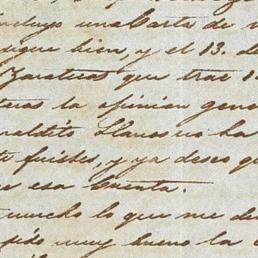 incluyo una Carta de
sigue bien, y el 13. de
Zacatecas que tras
la opinion gene
maldito Llanos no ha
fuistes, y ya deseo q
esa Cuenta.
mucho lo que me de
muy bueno la